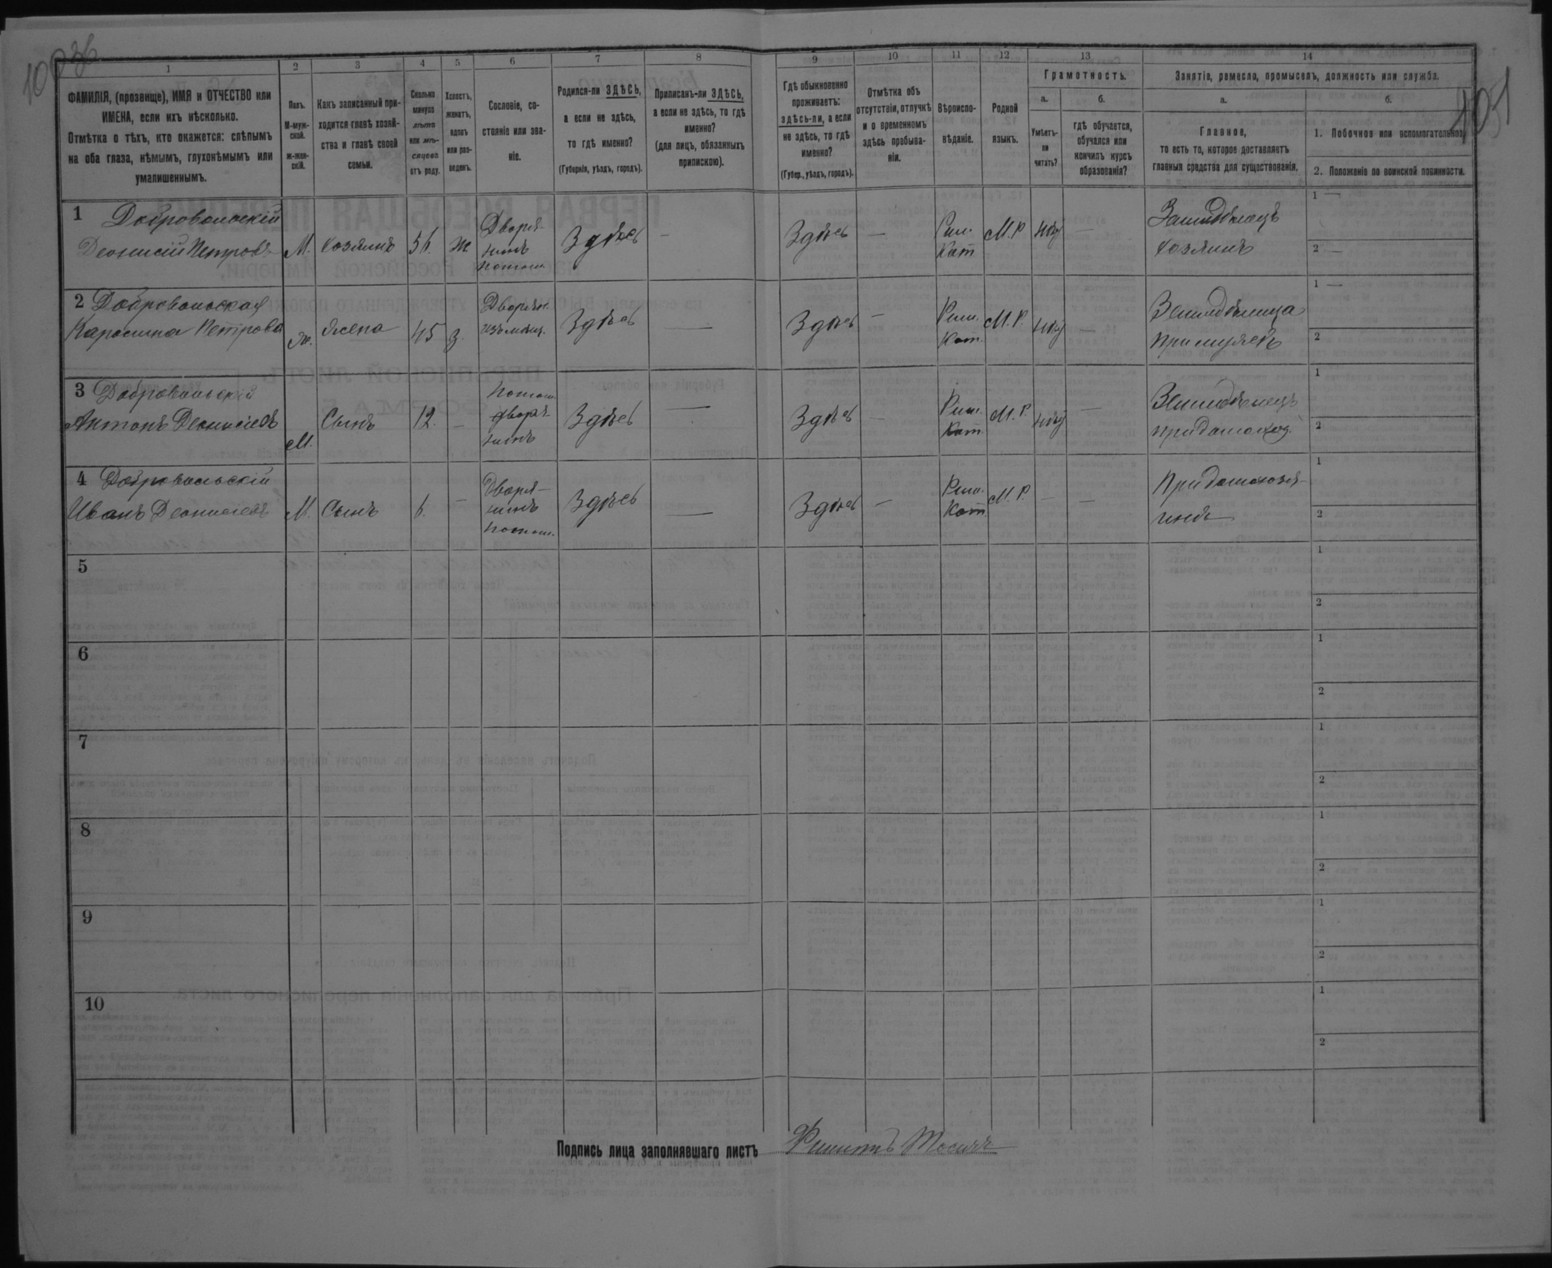 1
2
3
4
5
6
7
8
9
10
11
12
13
14
ФАМИЛІЯ, (прозвище), ИМЯ и ОТЧЕСТВО или
ИМЕНА, если ихъ нѣсколько.
Отмѣтка о тѣхъ, кто окажется: слѣпымъ
на оба глаза, нѣмымъ, глухонѣмымъ или
умалишеннымъ.
Полъ.
М-муж-
ской.
ж-жен-
скій.
Какъ записанный при-
ходится главѣ хозяй-
ства и главѣ своей
семьи.
Сколько
минуло
лѣтъ
или мѣ-
сяцевъ
отъ роду.
Холостъ,
женатъ,
вдовъ
или раз-
веденъ.
Сословіе, со-
стояніе или зва-
ніе.
Родился-ли ЗДѢСЬ,
а если не здѣсь,
то гдѣ именно?
(Губернія, уѣздъ, городъ).
Приписанъ-ли ЗДѢСЬ,
а если не здѣсь, то гдѣ
именно?
(для лицъ, обязанныхъ
припискою).
Гдѣ обыкновенно
проживаетъ:
здѣсь-ли, а если
не здѣсь, то гдѣ
именно?
(Губер., уѣздъ, городъ).
Отмѣтка объ
отсутствіи, отлучкѣ
и о временномъ
здѣсь пребыва-
ніи.
Вѣроиспо-
вѣданіе.
Родной
языкъ.
Грамотность.
а.
Умѣетъ-
ли
читать?
б.
гдѣ обучается,
обучался или
кончилъ курсъ
образованія?
Занятіе, ремесло, промыселъ, должность или служба.
а.
Главное,
то есть то, которое доставляетъ
главныя средства для существованія.
б.
1. Побочное или вспомогательное.
2. Положеніе по воинской повинности.
1 Добровольскій
Деонисій Петровъ
М.
хозяинъ
ж
Дворя-
нинъ
потом.
Здѣсь
—
Здѣсь
—
Рим.
Кат
М.Р
нѣт
—
Земледѣлецъ
хозяинъ
1 —
2 —
2 Добровольская
Каролина Петрова
ж.
жена
45
з.
Здѣсь
—
Здѣсь
—
Рим.
Кат.
М.Р.
нѣт
—
Земледѣлица
при мужѣ
1 —
2
3 Добровольскій
Антонъ Деонисіевъ
М.
Сынъ
12.
—
Потом.
дворя-
нинъ
Здѣсь
—
Здѣсь
—
Рим.
Кат.
М.Р.
нѣт
—
Земледѣлецъ
1
2
4 Добровольскій
Иванъ Деонисіевъ
М.
Сынъ
6.
—
Дворя-
нинъ
потом.
Здѣсь
—
Здѣсь
—
Рим.
Кат
М.Р.
—
—
1
2
5
1
2
6
1
2
7
1
2
8
1
2
9
1
2
10
1
2
Подпись лица заполнявшаго листъ